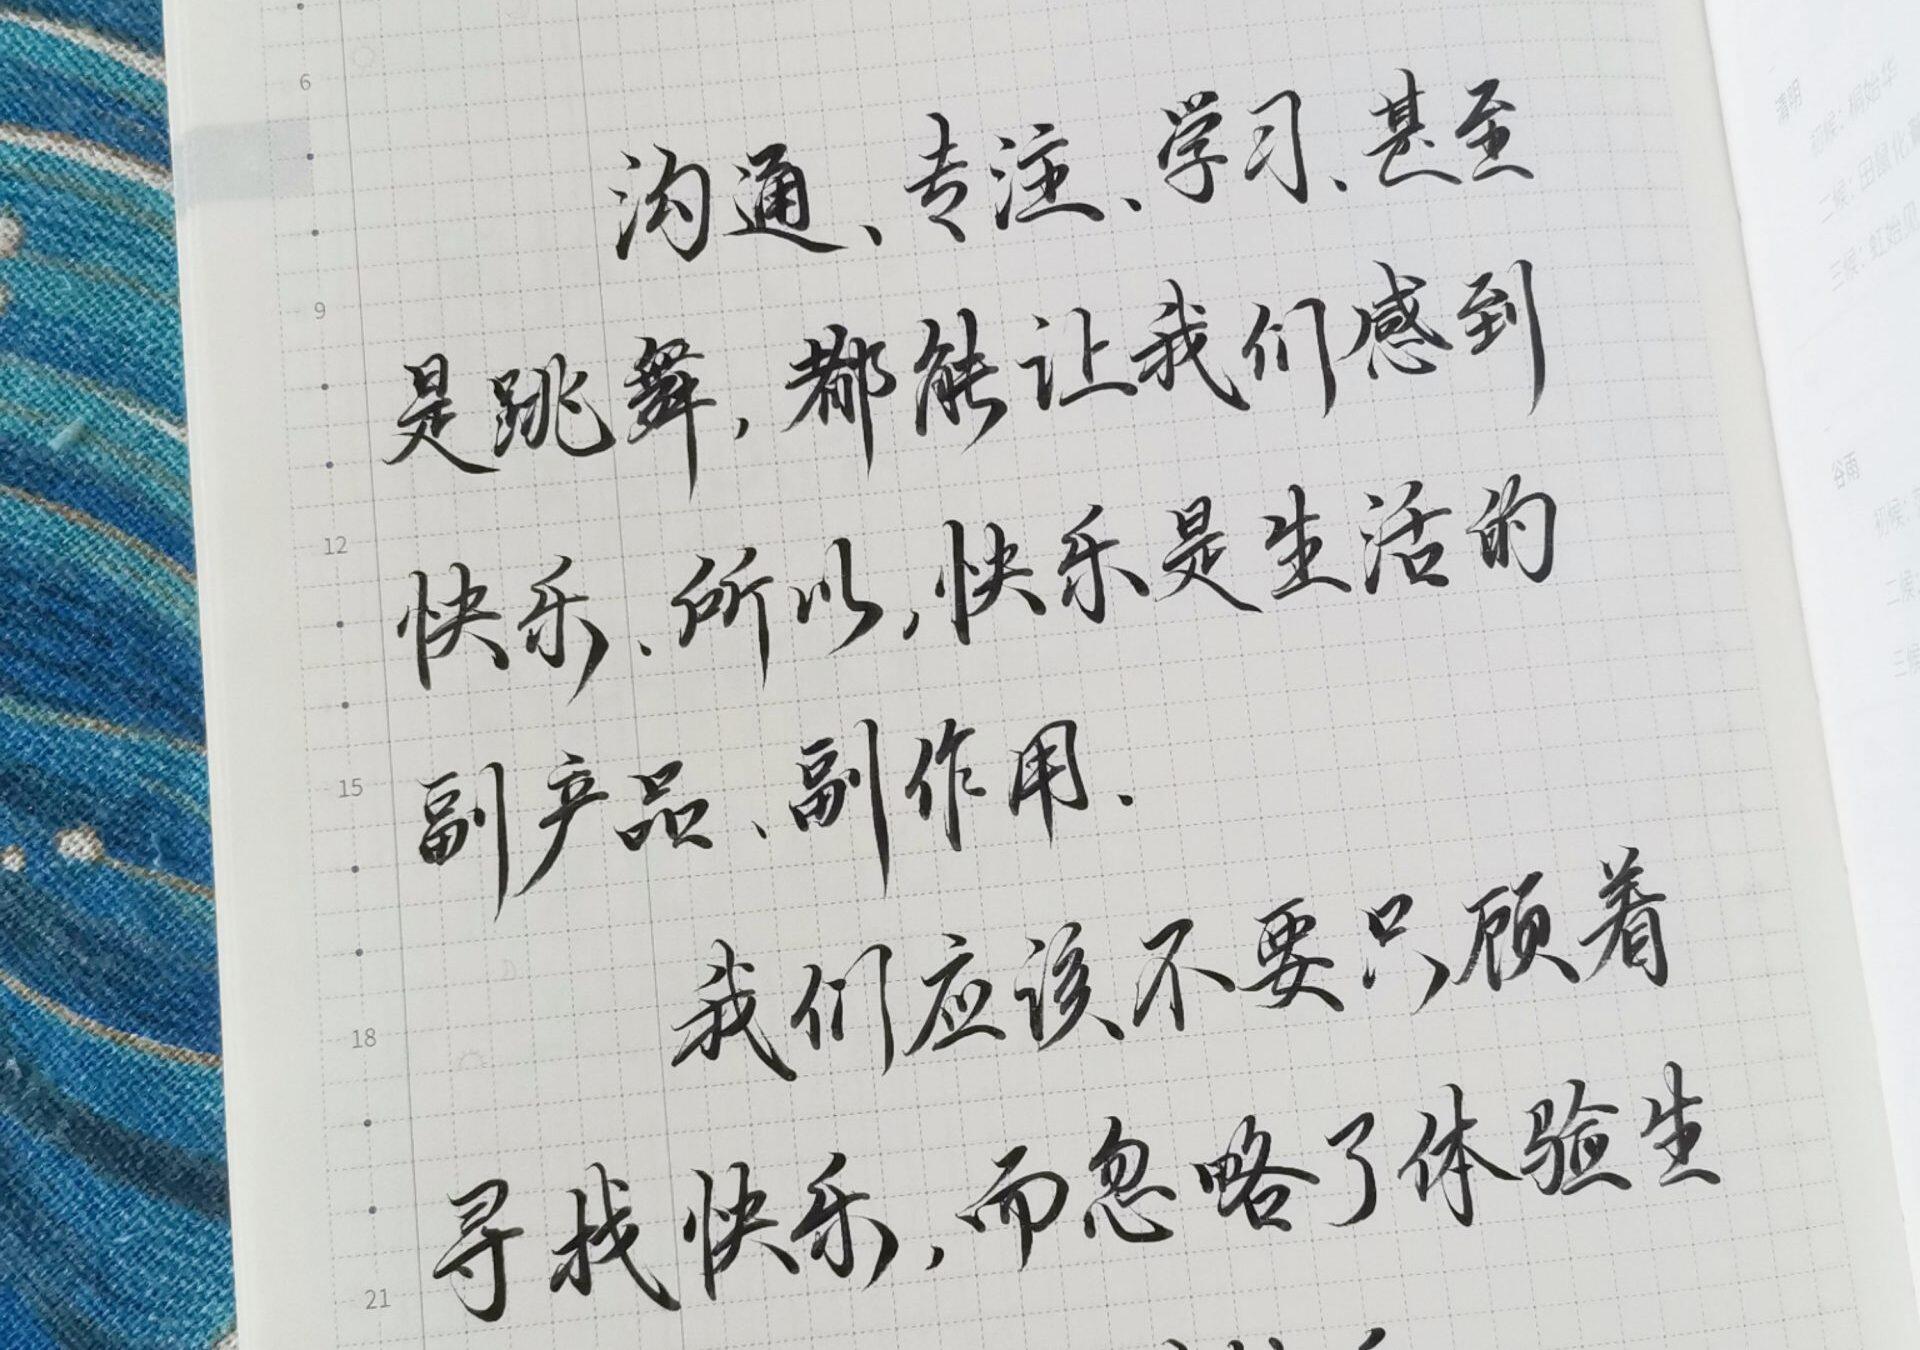 6
9
12
15
18
21
沟通、专注、学习、甚至
是跳舞，都能让我们感到
快乐、所以，快乐是生活的
副产品、副作用.
我们应该不要只顾着
寻找快乐，而忽略了体验生
清明
初候：桐始华
二候：田鼠化
三候：虹始见
谷雨
初候：
二候
三候